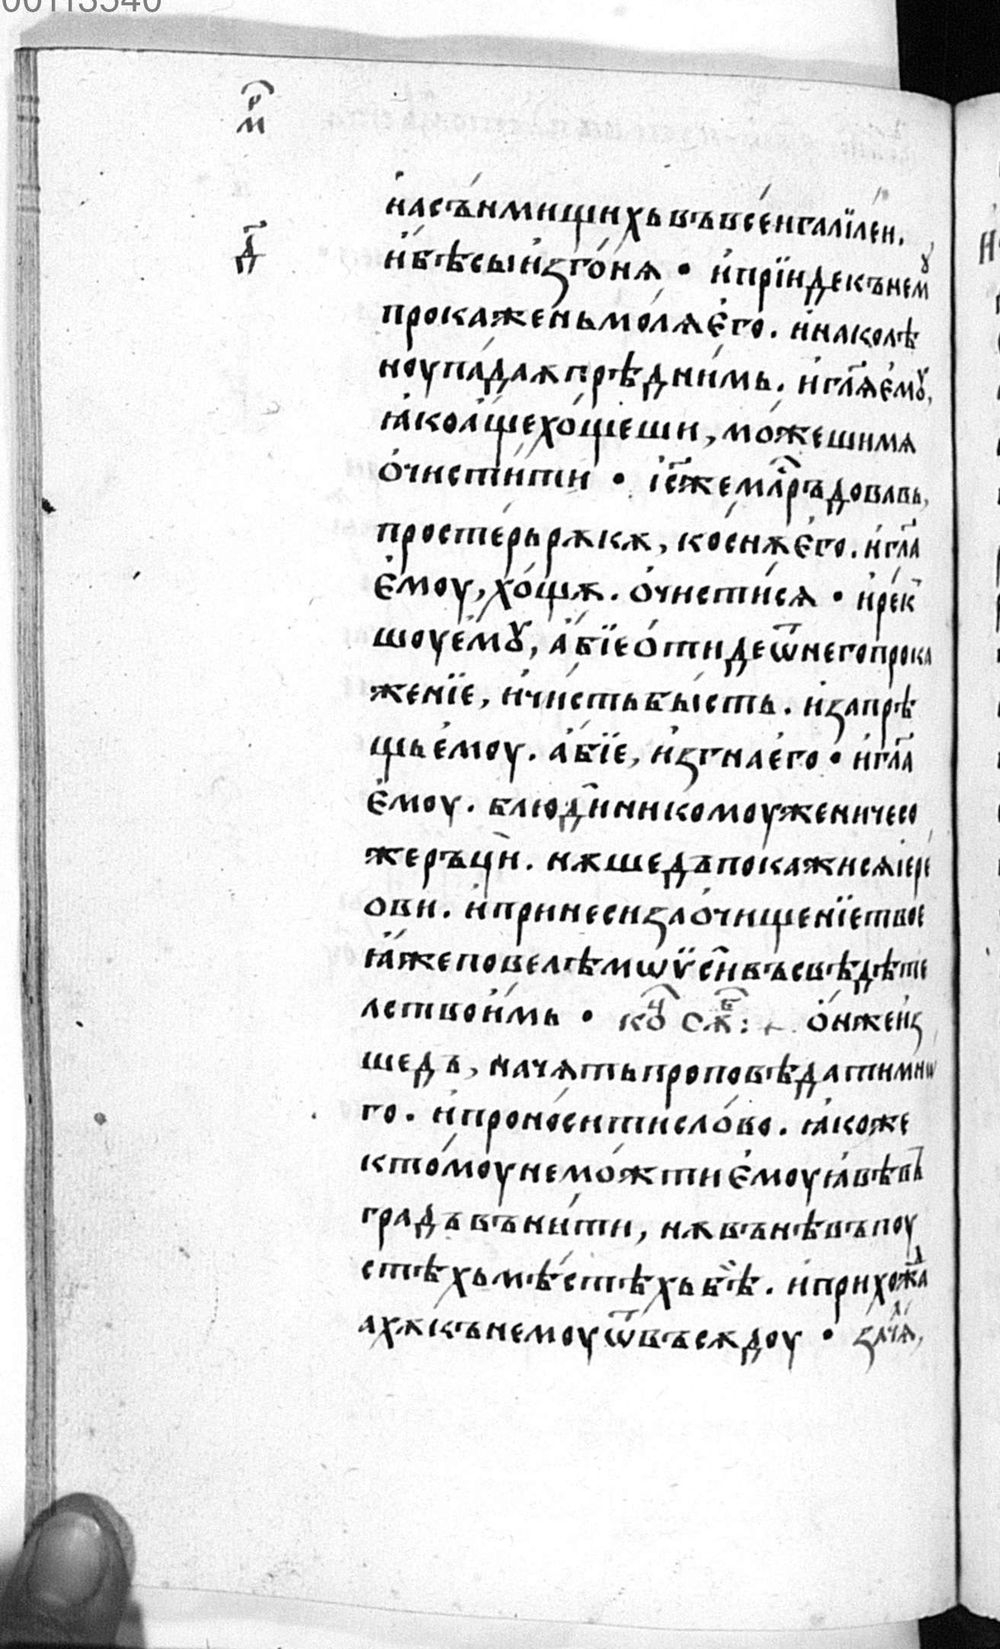 00113540
м҃р
и҆насъ́нмищихь въвсе́и галїле́и.
д҃
и҆бѣ́сы и҆ꙁго́нѧ • и҆прїи́де къ немꙋ
прокаже́нь молѧ є҆го̀. и҆ на колѣ
ноу па́даѫ прѣ́д ни́мь. и҆ гл҃ѧ є҆мꙋ̀,
ꙗ҆́ко а҆́ще хо́щеши, мо́жеши мѧ
ѡ҆чисти́ти • і҆с҃ же млⷭ҇рдовавь,
просте́рь рѫкѫ, коснѫ є҆го̀. и҆ гл҃а
є҆моу, хо́щѫ. ѻ҆чисти́сѧ • и҆ре́к
шоу є҆мꙋ̀, а҆́бїе ѻ҆ти́де ѿ него прока
же́нїе, и҆ чи́сть бы́сть. и҆ ꙁапрѣ
щь є҆моу. а҆́бїе, и҆ꙁгна є҆го • и҆ гл҃а
є҆моу. блюди́ ни никомоуже ничесо
же ръци́. нѫ шедъ покажисѧ і҆ере́
ови. и҆ принеси ꙁа ѻ҆чище́нїе твое
ꙗ҆́же повелѣ мѡѷси́ въ съвѣдѣте
лство и҆́мь • коⷰ҇ сѫⷠ҇: ѻ҆́нже и҆ꙁ
шедъ, начѧть проповѣдати мнѡ
го. и҆ проно́сити сло́во. ꙗ҆коже
кто́моу не мо́жѫти є҆моу ꙗ҆́вѣ въ
градъ въни́ти, нѫ вънѣ въ поу
стѣхь мѣ́стѣхь бѣ̀. и҆ прихожⷣа
ахѫ къ немоу ѿвъсѫдоу • ꙁача́лѧ,